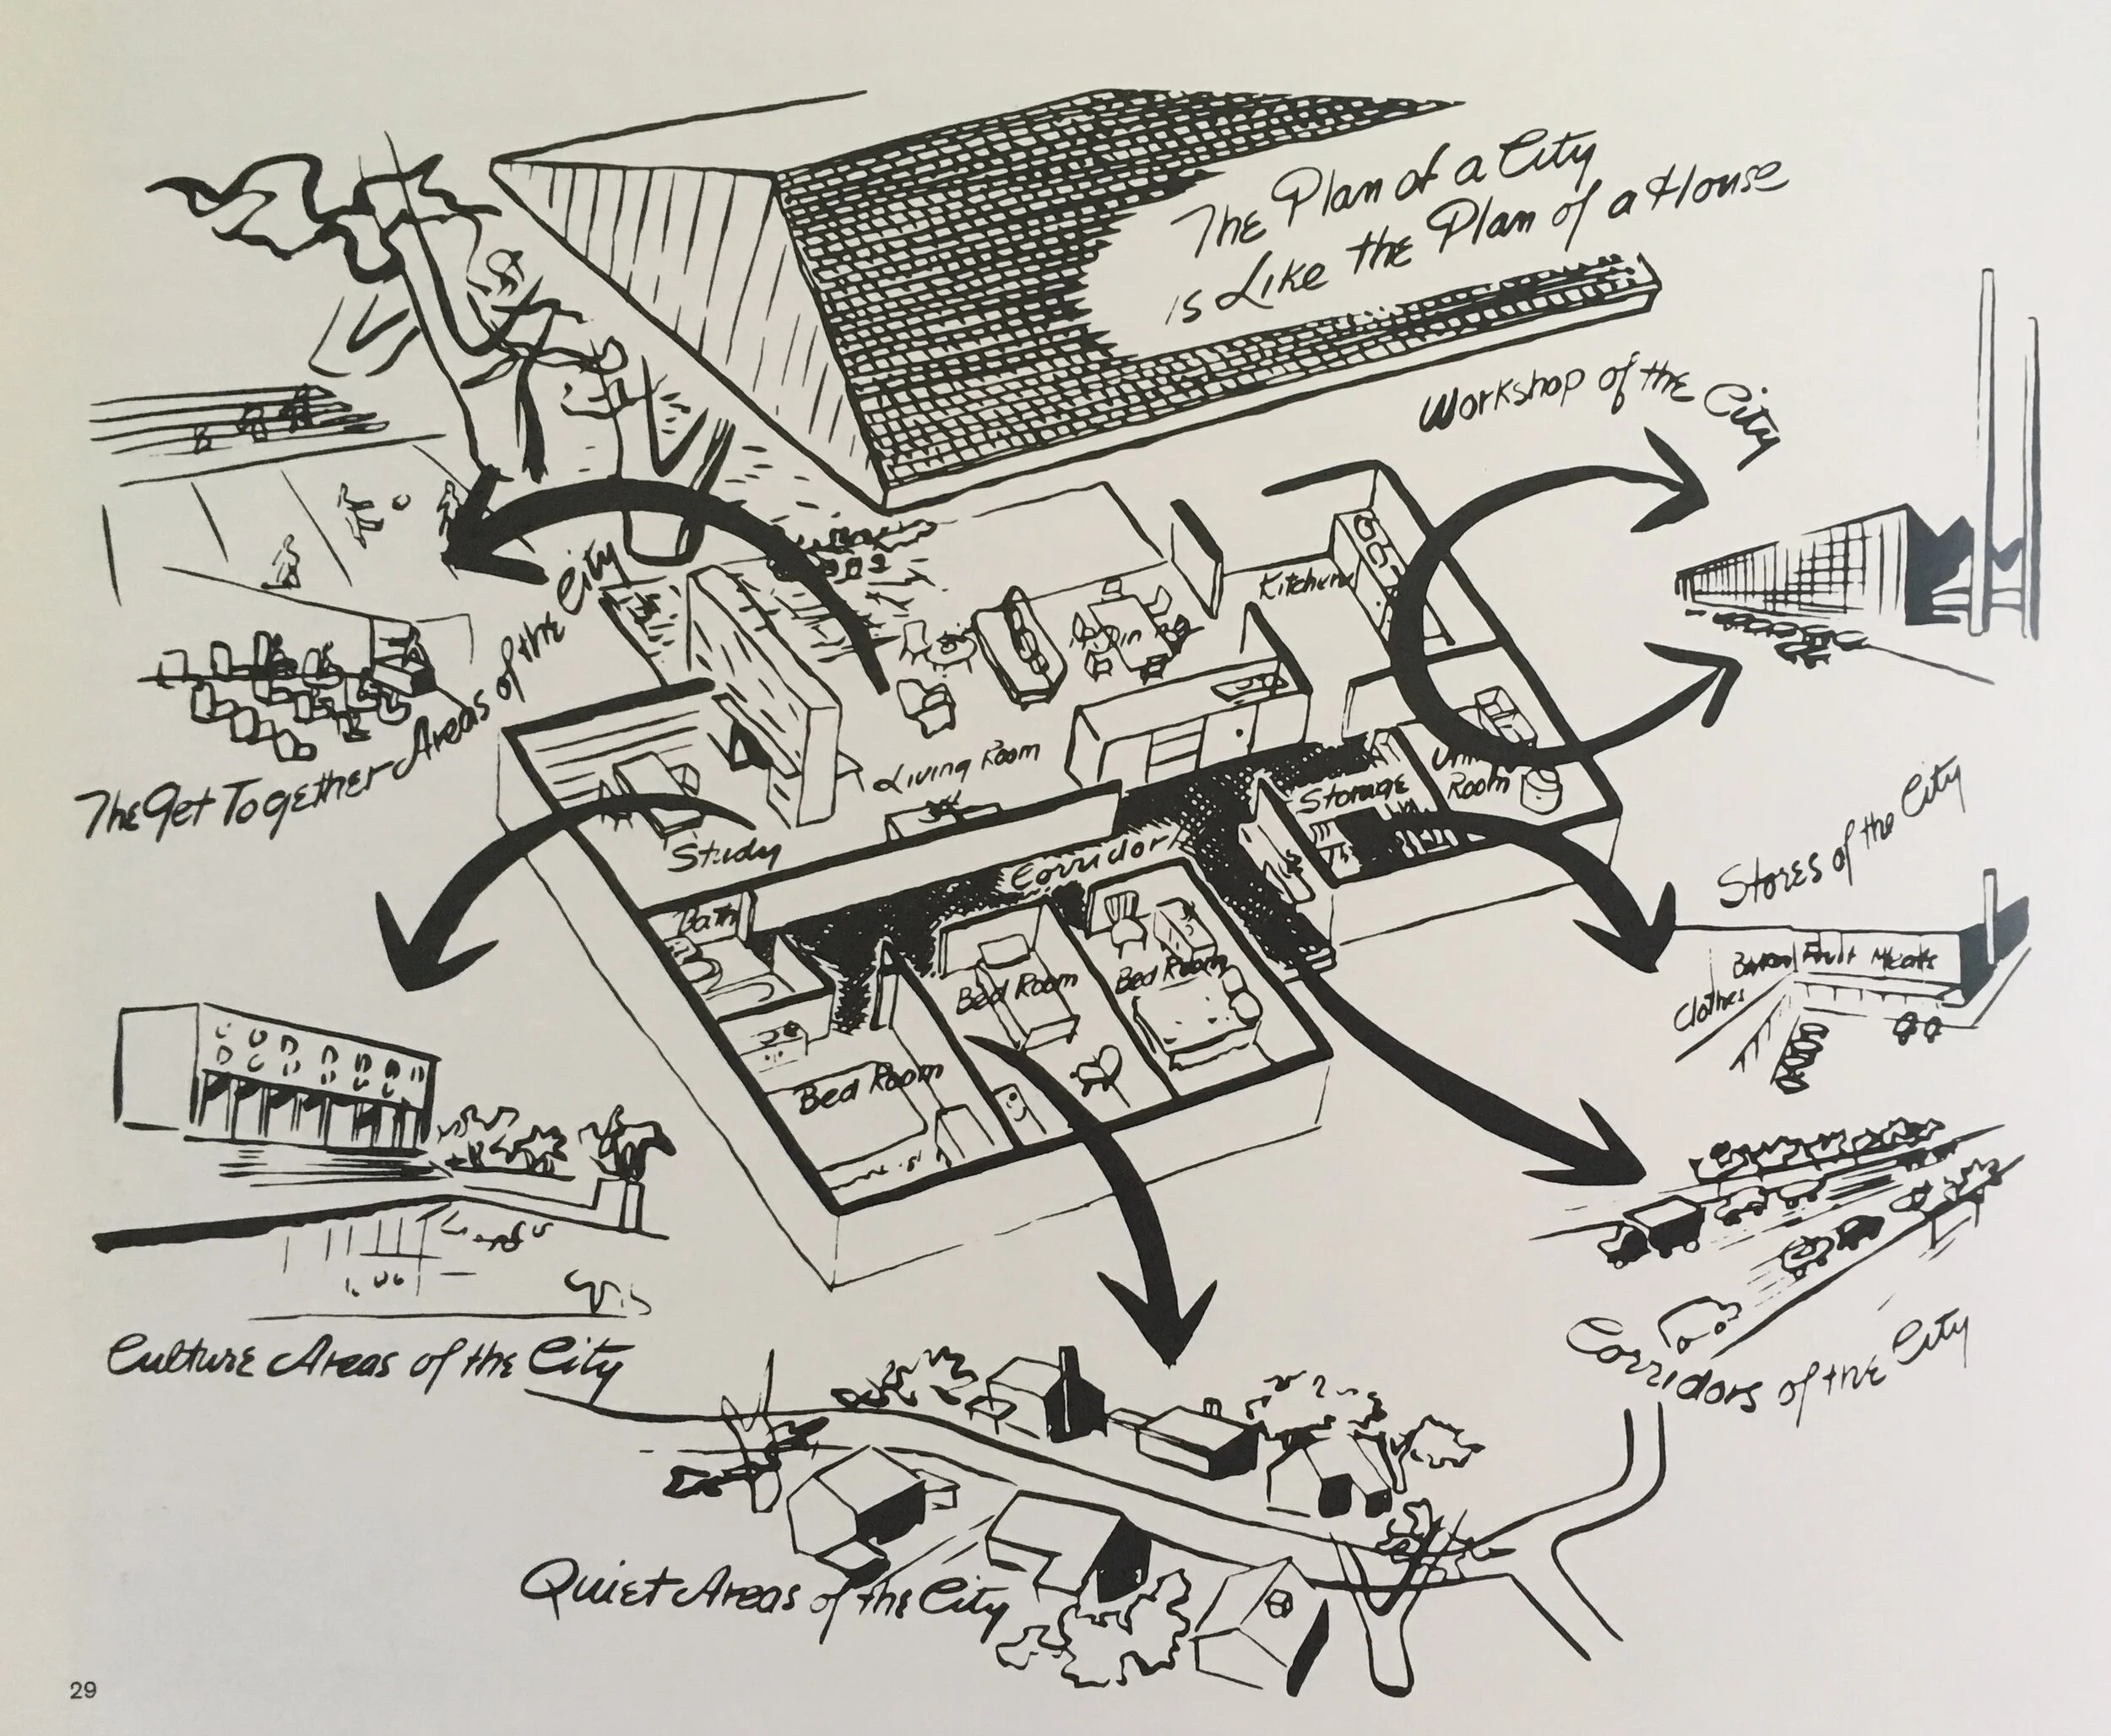 The Plan of a City
is Like the Plan of a House
Workshop of the City
Kitchen
Din
The Get Together Areas of the City
Living Room
Storage
Room
Study
Corridor
Stores of the City
Bath
Bed Room
Bed Room
Bed Room
Fruit Meats
Clothes
Culture Areas of the City
Corridors of the City
Quiet Areas of the City
29